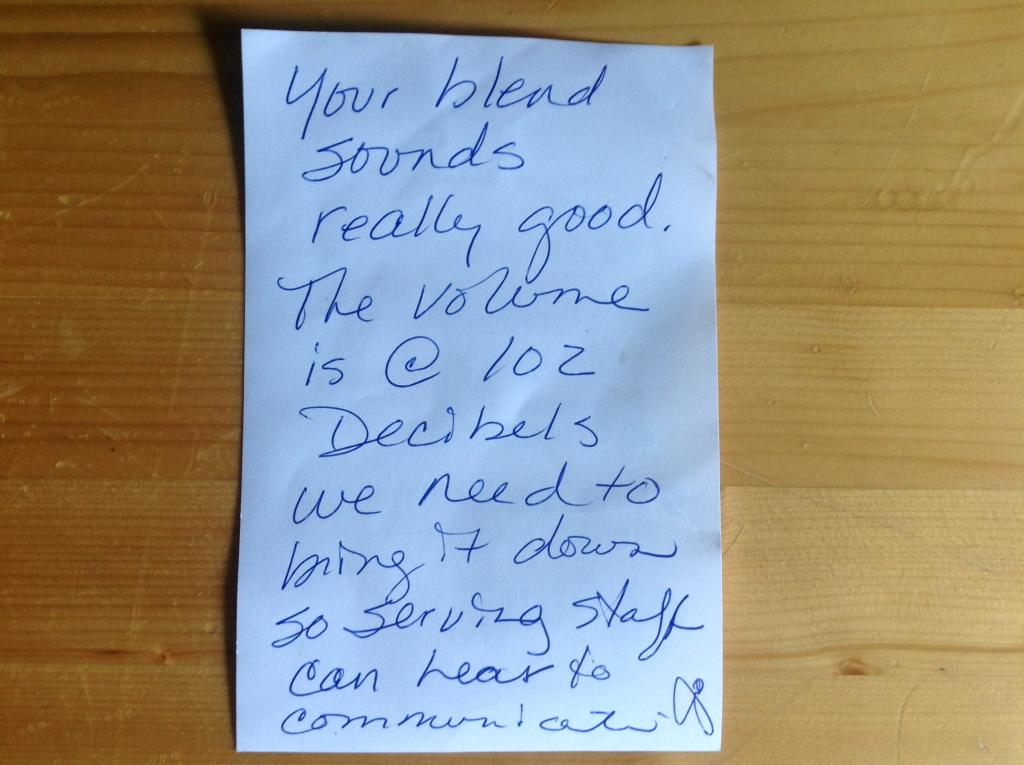 Your blend
sounds
really good.
The volume
is @ 102
Decibels
we need to
bring it down
so serving staff
can hear to
communicate